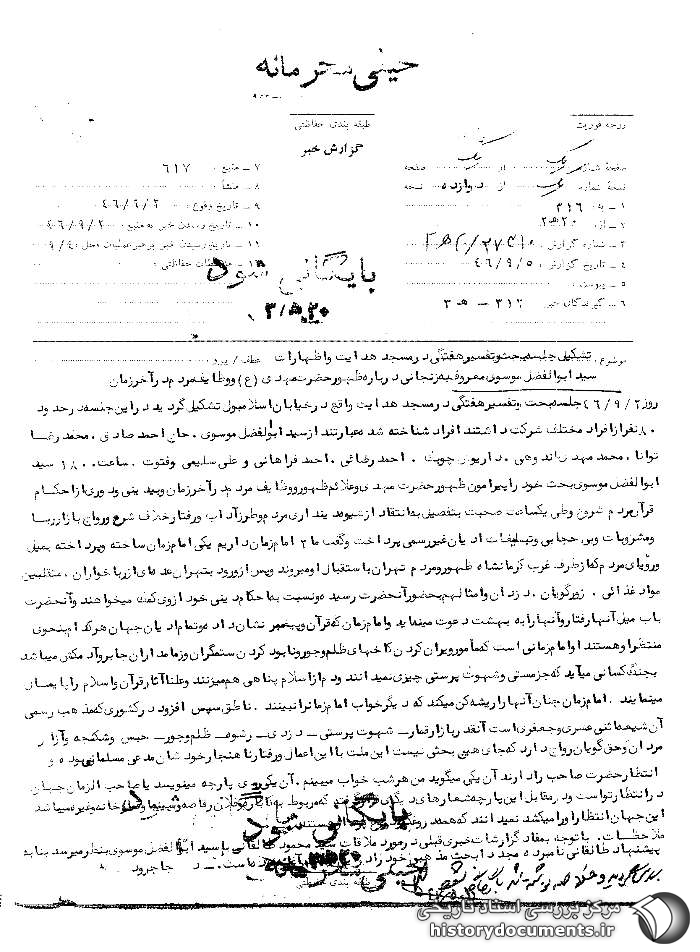 خیلی محرمانه
درجه فوریت
طبقه بندی حفاظتی
گزارش خبر
صفحه شماره یک از یک صفحه
نسخه شماره از دوازده نسخه
۱ - به ۳۱۶
۲ - از ۲۰ه۳
۳ - شماره گزارش
۴ - تاریخ گزارش ۴۶/۹/۵
۵ - پیوست
۶ - گیرندگان خبر ۳۱۲ - ۳ه
۷ - منبع ۶۱۷
۸ - منشأ
۹ - تاریخ وقوع ۴۶/۹/۲
۱۰ - تاریخ رسیدن خبر به منبع ۴۶/۹/۲
۱۱ - تاریخ رسیدن خبر برهبر عملیات محل ۹/۴
۱۲ - ملاحظات حفاظتی
بایگانی شود
موضوع تشکیل جلسه بحث و تفسیر هفتگی در مسجد هدایت و اظهارات
سید ابوالفضل موسوی معروف به زنجانی درباره ظهور حضرت مهدی (ع) و وظایف مردم در آخر زمان
روز ۴۶/۹/۲ جلسه بحث و تفسیر هفتگی در مسجد هدایت واقع در خیابان اسلامبول تشکیل گردید در این جلسه در حدود
۸۰ نفر از افراد مختلف شرکت داشتند افراد شناخته شده عبارتند از سید ابوالفضل موسوی . حاج احمد صادق . محمد رضا
توانا . محمد مهد . داریوش . احمد رضائی . احمد فراهانی و علی سلیعی و فتوت . ساعت ۱۸۰۰ سید
ابوالفضل موسوی بحث خود را پیرامون ظهور حضرت مهدی و علائم ظهور و وظایف مردم در آخر زمان و بیدینی و دوری از احکام
قرآن مردم شروع و طی یکساعت صحبت بتفصیل به انتقاد از شیوه دینداری مردم و طرز آداب و رفتار خلاف شرع و رواج بازار ربا
و مشروبات و بی حجابی و تبلیغات ادیان غیر رسمی پرداخت و گفت ما ۲ امام زمان داریم یکی امام زمان ساخته و پرداخته بمیل
و رؤیای مردم که از طرف غرب کرمانشاه ظهور و مردم تهران باستقبال او میروند و پس از ورود بتهران عده ای از رباخواران . متقلبین
مواد غذائی . زورگویان . دزدان و امثالهم بحضور آنحضرت رسیده و نسبت به احکام دینی خود از وی کمک میخواهند و آنحضرت
باب میل آنها رفتار و آنها را به بهشت دعوت مینماید و امام زمان که قرآن و پیغمبر نشان داده و تمام ادیان جهان هر کدام بنحوی
منتظر او هستند او امام زمانی است که مأمور ویران کردن کاخهای ظلم و جور و نابود کردن ستمگران و زمامداران جابر و آدمکش میباشد
بجنگ کسانی میآید که جز مستی و شهوت پرستی چیزی نمیدانند و دم از اسلام پناهی هم میزنند و علنا آثار قرآن و اسلام را پایمال
مینمایند . امام زمان چنان آنها را ریشه کن میکند که دیگر خواب امام زمان را نبینند . ناطق سپس افزود در کشوری که مذهب رسمی
آن شیعه اثنی عشری و جعفری است آنقدر بازار قمار - شهوت پرستی - دزدی - رشوه - ظلم و جور - حبس و شکنجه و آزار
مردان و حق گویان رواج دارد که جای هیچ بحثی نیست این ملت با این اعمال و رفتار ناهنجار خودشان مدعی مسلمانی بوده و
انتظار حضرت صاحب را دارند آن یکی میگوید من هر شب خواب میبینم . آن یکی روی پارچه مینویسد یا صاحب الزمان جهان
در انتظار تو است و در مقابل این پارچه شعارهای دیگری که مربوط به فلان رقاصه و سینما و غیره میباشد
این جهان انتظار او را میکشد نمیدانند که همه دروغ
ملاحظات . با توجه بمفاد گزارشات خبری قبلی در مورد ملاقات سید محمود طالقانی با سید ابوالفضل موسوی بنظر میرسد بنا به
پیشنهاد طالقانی نامبرده مجددا بحث مذهبی خود را
بایگانی شود
خیلی محرمانه
طبقه بندی حفاظتی
مرکز بررسی اسناد تاریخی
historydocuments.ir